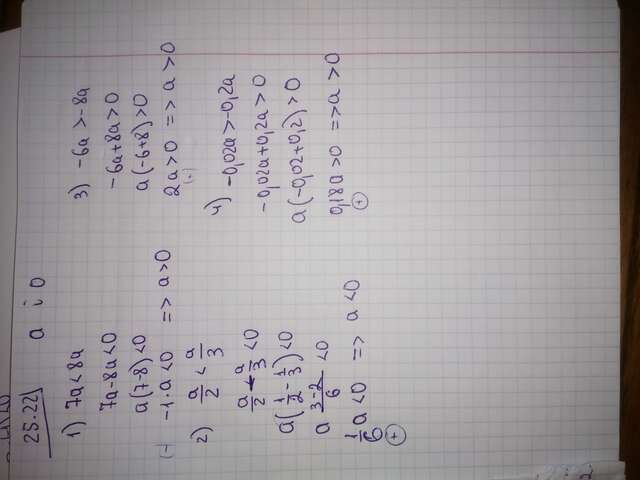 25.22
a i 0
1) 7a < 8a
7a - 8a < 0
a(7-8) < 0
(-) -1·a < 0 => a > 0
2) a/2 < a/3
a/2 - a/3 < 0
a(1/2 - 1/3) < 0
a 3-2/6 < 0
1/6 a < 0 => a < 0
+
3) -6a > -8a
-6a + 8a > 0
a(-6+8) > 0
2a > 0 => a > 0
4) -0,02a > -0,2a
-0,02a + 0,2a > 0
a(-0,02 + 0,2) > 0
0,18a > 0 => a > 0
+